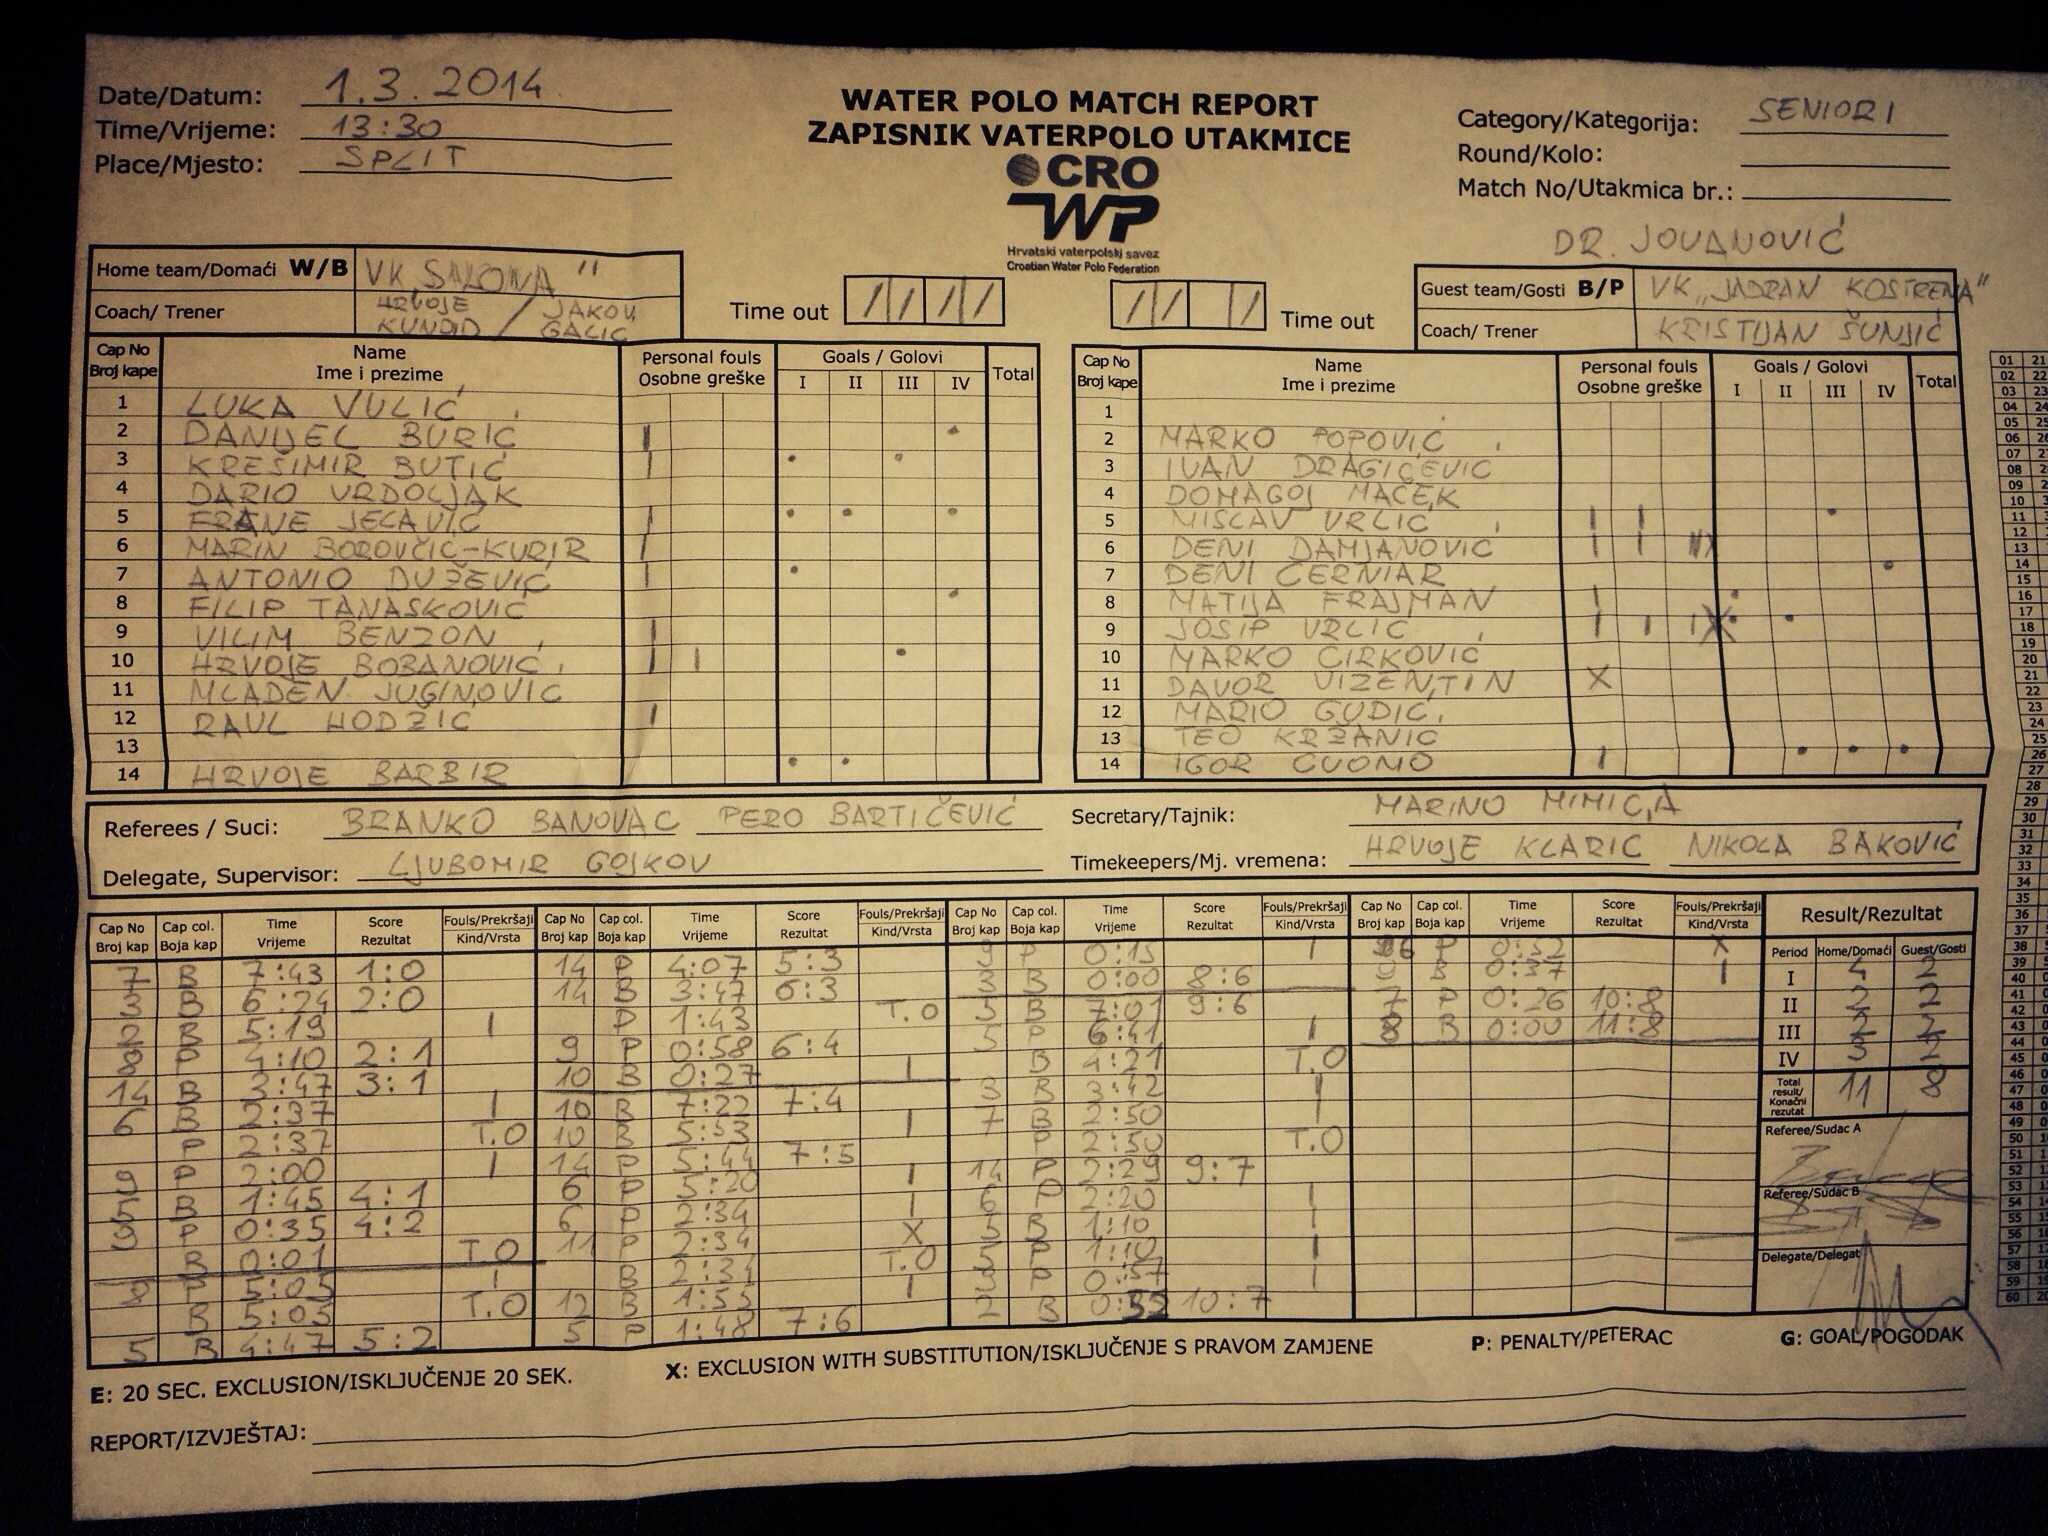 Date/Datum: 1.3.2014
Time/Vrijeme: 13:30
Place/Mjesto: SPLIT
WATER POLO MATCH REPORT
ZAPISNIK VATERPOLO UTAKMICE
CRO
WP
Hrvatski vaterpolski savez
Croatian Water Polo Federation
Category/Kategorija: SENIORI
Round/Kolo:
Match No/Utakmica br.:
DR. JOVANOVIĆ
Home team/Domaći W/B VK „SALONA"
Coach/ Trener HRVOJE KUNDID / JAKOV GALIC
Time out
Time out
Guest team/Gosti B/P VK „JADRAN KOSTRENA"
Coach/ Trener KRISTIJAN ŠUNJIĆ
Cap No Name Personal fouls Goals / Golovi Total
Broj kape Ime i prezime Osobne greške I II III IV
1 LUKA VULIĆ
2 DANIJEL BURIĆ
3 KREŠIMIR BUTIĆ
4 DARIO VRDOLJAK
5 FRANE JELAVIĆ
6 MARIN BOROVČIĆ-KURIR
7 ANTONIO DUŽEVIĆ
8 FILIP TANASKOVIĆ
9 VILIM BENZON
10 HRVOJE BOBANOVIĆ
11 MLADEN JUGINOVIĆ
12 RAUL HODŽIĆ
13
14 HRVOJE BARBIR
Cap No Name Personal fouls Goals / Golovi Total
Broj kape Ime i prezime Osobne greške I II III IV
1
2 MARKO POPOVIĆ
3 IVAN DRAGIČEVIĆ
4 DOMAGOJ MAČEK
5 MISLAV VRLIĆ
6 DENI DAMJANOVIĆ
7 DENI ČERNIAR
8 MATIJA FRAJMAN
9 JOSIP VRLIĆ
10 MARKO ĆIRKOVIĆ
11 DAVOR VIZENTIN
12 MARIO GUDIĆ
13 TEO KRŽANIĆ
14 IGOR CUOMO
Referees / Suci: BRANKO BANOVAC PERO BARTIČEVIĆ
Delegate, Supervisor: LJUBOMIR GOJKOV
Secretary/Tajnik: MARINO MIMICA
Timekeepers/Mj. vremena: HRVOJE KLARIĆ NIKOLA BAKOVIĆ
Cap No Cap col. Time Score Fouls/Prekršaji
Broj kap Boja kap Vrijeme Rezultat Kind/Vrsta
7 B 7:43 1:0
3 B 6:24 2:0
2 B 5:19 I
8 P 4:10 2:1
14 B 3:47 3:1
6 B 2:37 I
P 2:37 T.O
9 P 2:00 I
5 B 1:45 4:1
9 P 0:35 4:2
B 0:01 T.O
8 P 5:05 I
B 5:05 T.O
5 B 4:47 5:2
Cap No Cap col. Time Score Fouls/Prekršaji
Broj kap Boja kap Vrijeme Rezultat Kind/Vrsta
14 P 4:07 5:3
14 B 3:47 6:3
P 1:43 T.O
9 P 0:58 6:4
10 B 0:27 I
10 B 7:22 7:4
10 B 5:53 I
14 P 5:44 7:5
6 P 5:20 I
6 P 2:34 I
11 P 2:34 X
B 2:34 T.O
12 B 1:55 I
5 P 1:48 7:6
Cap No Cap col. Time Score Fouls/Prekršaji
Broj kap Boja kap Vrijeme Rezultat Kind/Vrsta
9 P 0:15 I
3 B 0:00 8:6
5 B 7:01 9:6
5 P 6:41 I
B 4:21 T.O
3 B 3:42 I
7 B 2:50 I
P 2:50 T.O
14 P 2:29 9:7
6 P 2:20 I
5 B 1:10 I
5 P 1:10 I
9 P 0:57 I
2 B 0:52 10:7
Cap No Cap col. Time Score Fouls/Prekršaji
Broj kap Boja kap Vrijeme Rezultat Kind/Vrsta
6 P 0:52 X
9 B 0:37 I
7 P 0:26 10:8
8 B 0:00 11:8
Result/Rezultat
Period Home/Domaći Guest/Gosti
I 4 2
II 2 2
III 2 2
IV 3 2
Total result/ Konačni rezutat 11 8
Referee/Sudac A
Referee/Sudac B
Delegate/Delegat
E: 20 SEC. EXCLUSION/ISKLJUČENJE 20 SEK.
X: EXCLUSION WITH SUBSTITUTION/ISKLJUČENJE S PRAVOM ZAMJENE
P: PENALTY/PETERAC
G: GOAL/POGODAK
REPORT/IZVJEŠTAJ: